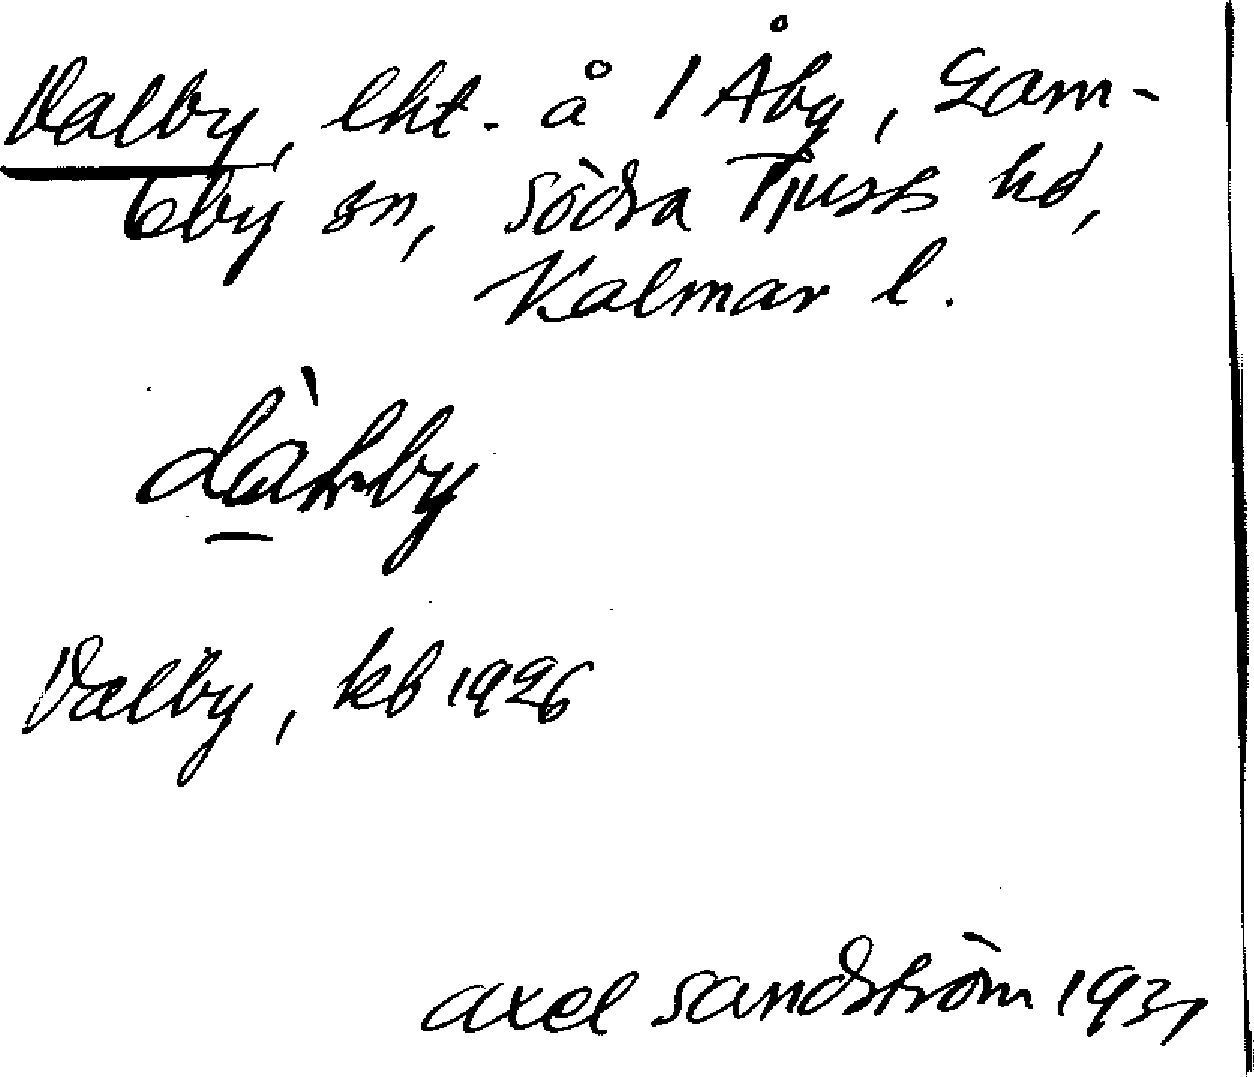 Dalby, lht. å 1 Åby, Gam-
leby sn, Södra Tjusts hd,
Kalmar l.
Dalby, kb 1926
axel sandström 1937